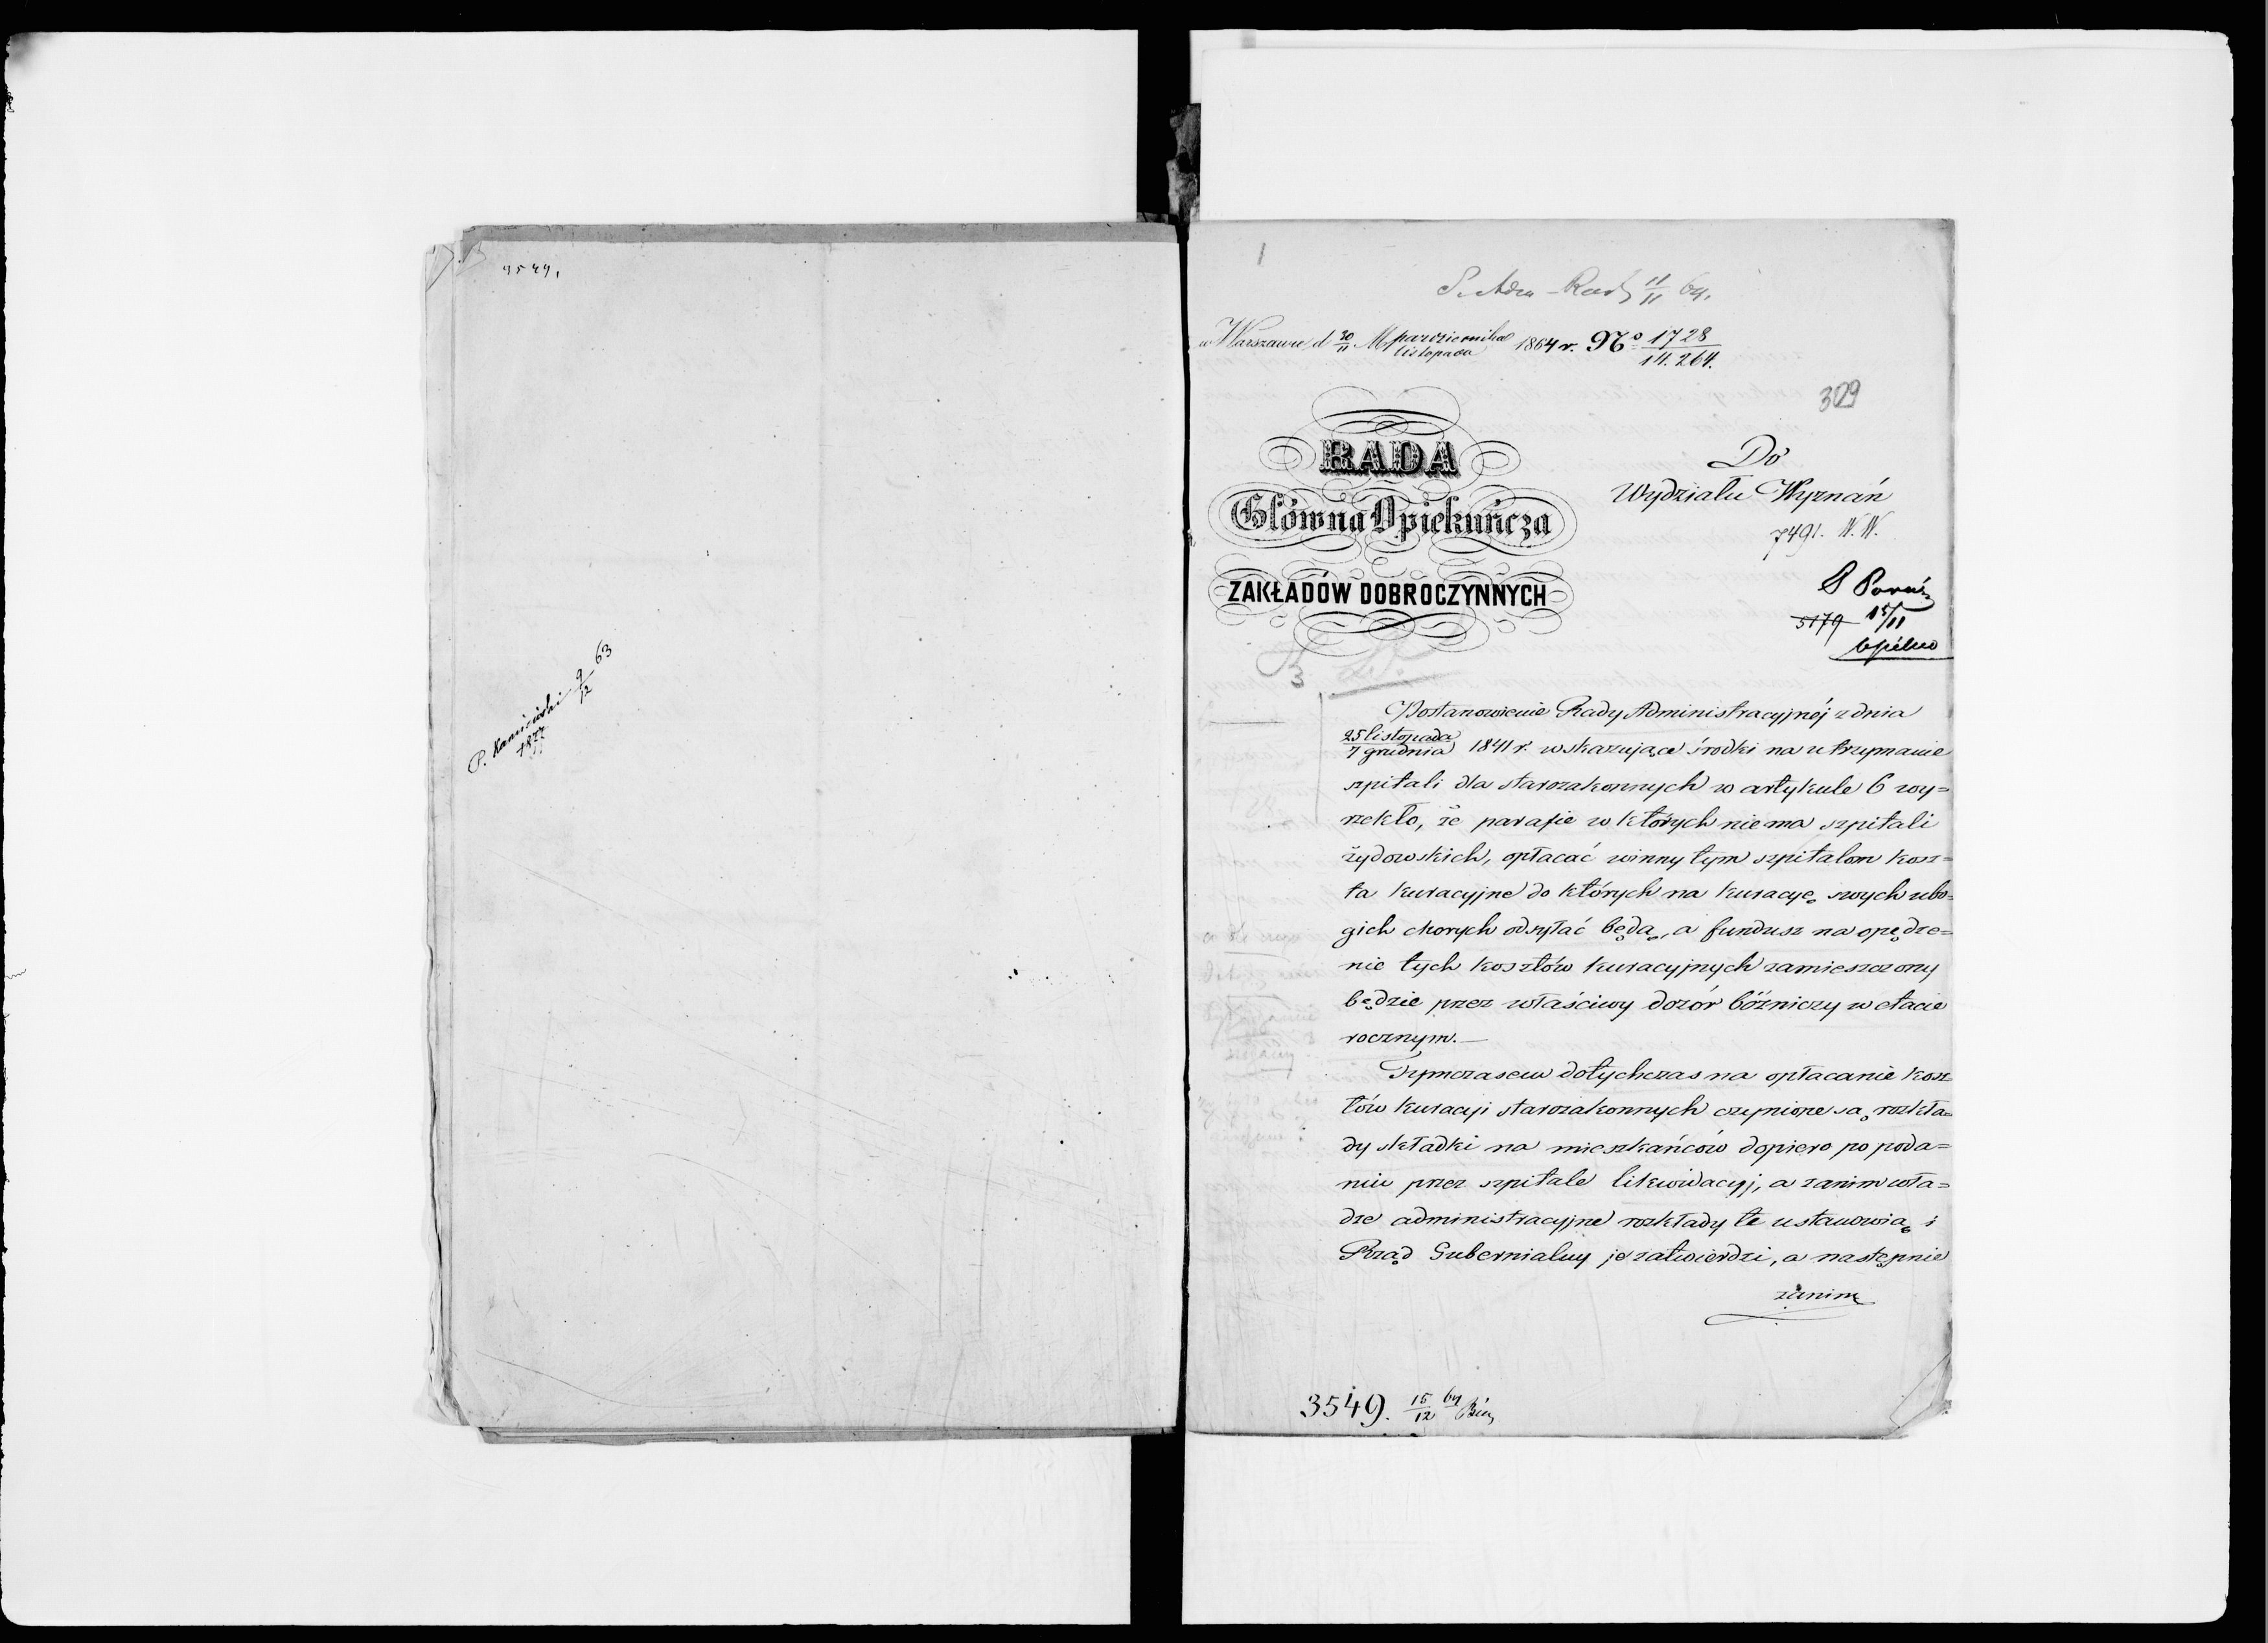 3549.
P. Kamiński 9/12 63
1877
1
S. Adm - Rady 11/11 64.
w Warszawie d 30/11 M października/listopada 1864 r. No 1728/14.264.
309
RADA
Główna Opiekuńcza
ZAKŁADÓW DOBROCZYNNYCH
Do
Wydziału Wyznań
7491. W. W.
5179 15/11
Postanowienie Rady Administracyjnéj z dnia
25 listopada/7 grudnia 1841 r. wskazujące środki na utrzymanie
szpitali dla starozakonnych w artykule 6 wy=
rzekło, że parafie w których niema szpitali
żydowskich, opłacać winny tym szpitalom kosz=
ta kuracyjne do których na kuracyę swych ubo=
gich chorych odsyłać będą, a fundusz na opędze=
nie tych kosztów kuracyjnych zamieszczony
będzie przez właściwy dozór bóżniczy w etacie
rocznym.—
Tymczasem dotychczas na opłacanie kosz=
tów kuracyi starozakonnych czynione są rozkła=
dy składki na mieszkańców dopiero po poda=
niu przez szpitale likwidacyj, a zanim wła=
dze administracyjne rozkłady te ustanowią i
Rząd Gubernialny je zatwierdzi, a następnie
zanim
3549. 15/12 64